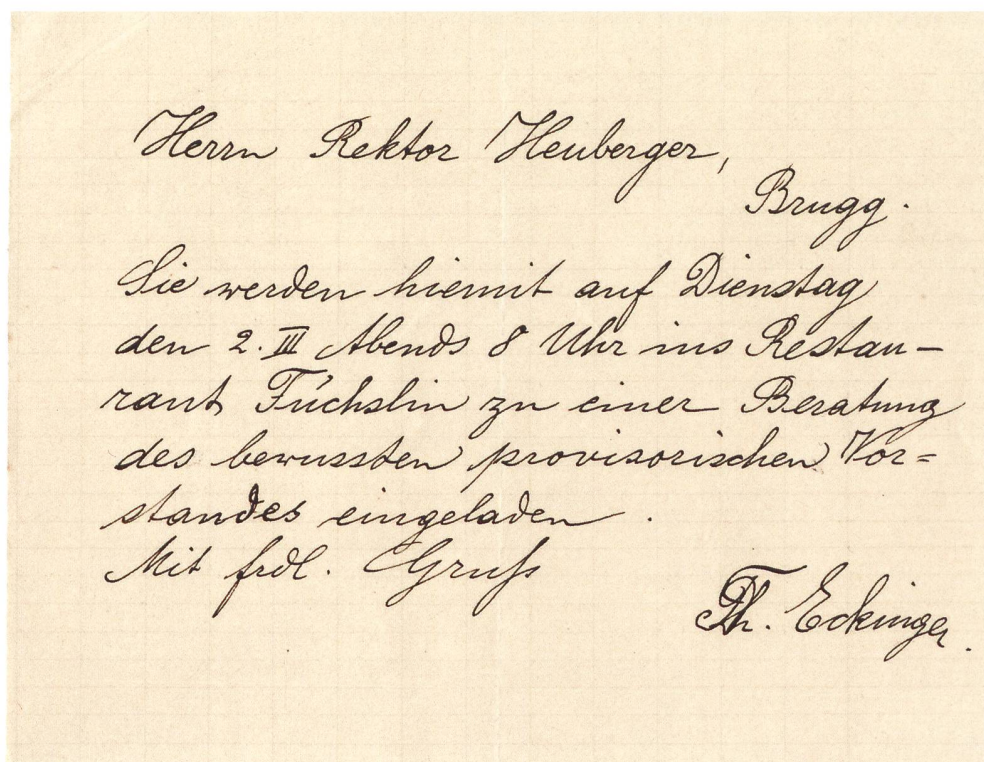 Herrn Rektor Heuberger,
Brugg.
Sie werden hiemit auf Dienstag
den 2. III Abends 8 Uhr ins Restau-
rant Füchslin zu einer Beratung
des bewussten provisorischen Vor=
standes eingeladen.
Mit frdl. Gruß
Th. Eckinger.